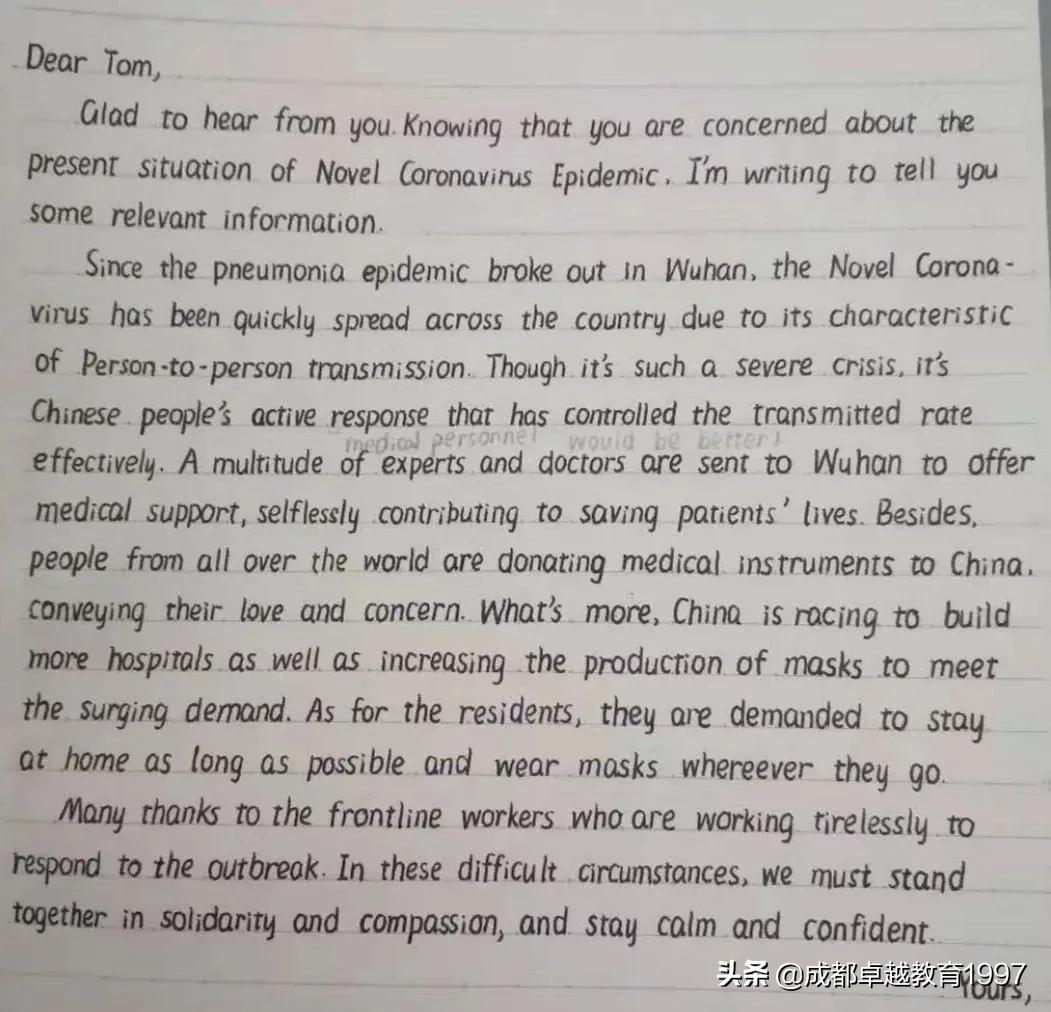 Dear Tom,
Glad to hear from you. Knowing that you are concerned about the
present situation of Novel Coronavirus Epidemic. I'm writing to tell you
some relevant information.
Since the pneumonia epidemic broke out in Wuhan, the Novel Corona-
virus has been quickly spread across the country due to its characteristic
of Person-to-person transmission. Though it's such a severe crisis, it's
Chinese people's active response that has controlled the transmitted rate
medical personnel would be better!
effectively. A multitude of experts and doctors are sent to Wuhan to offer
medical support, selflessly contributing to saving patients' lives. Besides,
people from all over the world are donating medical instruments to China,
conveying their love and concern. What's more, China is racing to build
more hospitals as well as increasing the production of masks to meet
the surging demand. As for the residents, they are demanded to stay
at home as long as possible and wear masks whereever they go.
Many thanks to the frontline workers who are working tirelessly to
respond to the outbreak. In these difficult circumstances, we must stand
together in solidarity and compassion, and stay calm and confident.
Yours,
头条 @成都卓越教育1997